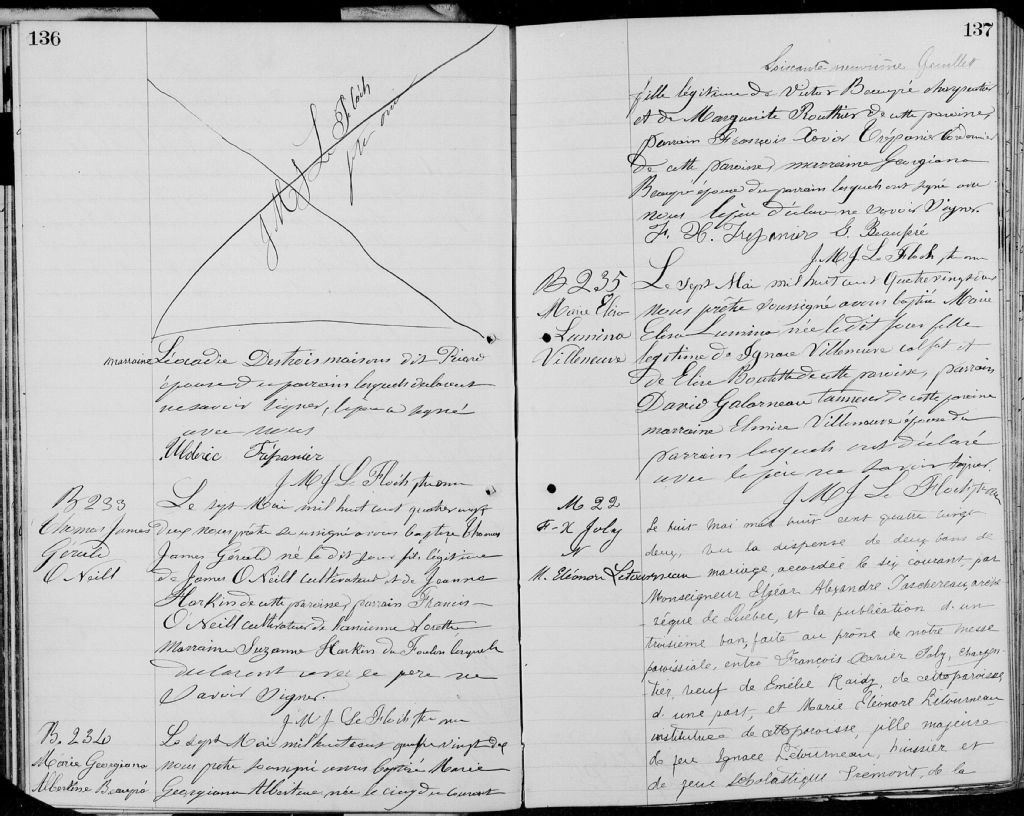 136
J M J Le Floch
ptre
marraine Léocadie Destroismaisons dit Picard
épouse du parrain lesquels déclarent
ne savoir signer, le père a signé
avec nous
Ulderic Trépanier
J. M. J. Le Floch ptre
B 233
Thomas James
Gérald
O Neill
Le sept Mai mil huit cent quatre vingt
deux nous prêtre soussigné avons baptisé Thomas
James Gérald né le dit jour fils légitime
de James O Neill cultivateur et de Joanne
Harkin de cette paroisse, parrain Francis
O Neill cultivateur de l'ancienne Lorette
Marraine Suzanne Harkin du Foulon lesquels
déclarent avec le père ne
savoir signer.
J M J Le Floch ptre
B. 234
Marie Georgiana
Albertine Beaupré
Le sept Mai mil huit cent quatre vingt deux
nous prêtre soussigné avons baptisé Marie
Georgiana Albertine née le cinq du courant
137
Soixante neuvième feuillet
fille légitime de Victor Beaupré charpentier
et de Marguerite Routhier de cette paroisse,
parrain François Xavier Trépanier Cordonnier
de cette paroisse, marraine Georgiana
Beaupré épouse du parrain lesquels ont signé avec
nous le père déclare ne savoir signer.
F. X. Trepanier G. Beaupré
J. M. J. Le Floch ptre
B 235
Marie Elisa
Lumina
Villeneuve
Le sept Mai mil huit cent quatre vingt deux
nous prêtre soussigné avons baptisé Marie
Elisa Lumina née le dit jour fille
légitime de Ignace Villeneuve calfat et
de Elise Boutette de cette paroisse, parrain
David Galarneau tanneur de cette paroisse
marraine Elmire Villeneuve épouse du
parrain lesquels ont déclaré
avec le père ne savoir signer.
J M J Le Floch ptre
M 22
F-X Joly
&
M. Eléonore Letourneau
Le huit mai mil huit cent quatre vingt
deux, vu la dispense de deux bans de
mariage accordée le six courant, par
Monseigneur Elzéar Alexandre Taschereau, arche-
vêque de Québec, et la publication d'un
troisième ban, faite au prône de notre messe
paroissiale, entre François Xavier Joly, charpen-
tier, veuf de Emélie Kardy, de cette paroisse
d'une part, et Marie Eléonore Letourneau
institutrice de cette paroisse, fille majeure
de feu Ignace Létourneau, huissier et
de feue Scholastique Fremont, de la